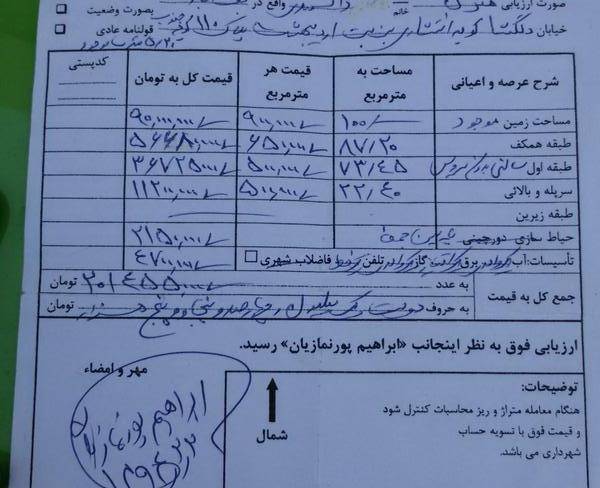 صورت ارزیابی واقع در
خانم بصورت وضعیت
خیابان دلگشا کوی پلاک ۱۱ قولنامه عادی
شرح عرصه و اعیانی مساحت به مترمربع قیمت هر مترمربع قیمت کل به تومان کدپستی
مساحت زمین موجود ۱۰۰/ ۹۰۰,۰۰۰/ ۹۰,۰۰۰,۰۰۰/
طبقه همکف ۸۷/۲۰ ۶۵۰,۰۰۰/ ۵۶۶۸۰,۰۰۰/
طبقه اول ۷۳/۴۵ ۵۰۰,۰۰۰/ ۳۶۷۲۵۰۰۰/
سرپله و بالائی ۲۲/۴۰ ۵۰۰,۰۰۰/ ۱۱۲۰۰,۰۰۰/
طبقه زیرین
حیاط سازی دورچینی ۲۱۵۰,۰۰۰/
تأسیسات: آب برق گاز تلفن فاضلاب شهری ۴۷۰۰,۰۰۰/
جمع کل به قیمت به عدد ۲۰۱۴۵۵۰۰۰/ تومان
به حروف دویست و یک میلیون و چهارصد و پنجاه و پنج هزار تومان
ارزیابی فوق به نظر اینجانب «ابراهیم پورنمازیان» رسید.
مهر و امضاء
توضیحات:
هنگام معامله متراژ و ریز محاسبات کنترل شود
و قیمت فوق با تسویه حساب
شهرداری می باشد.
شمال
ابراهیم پورنمازیان